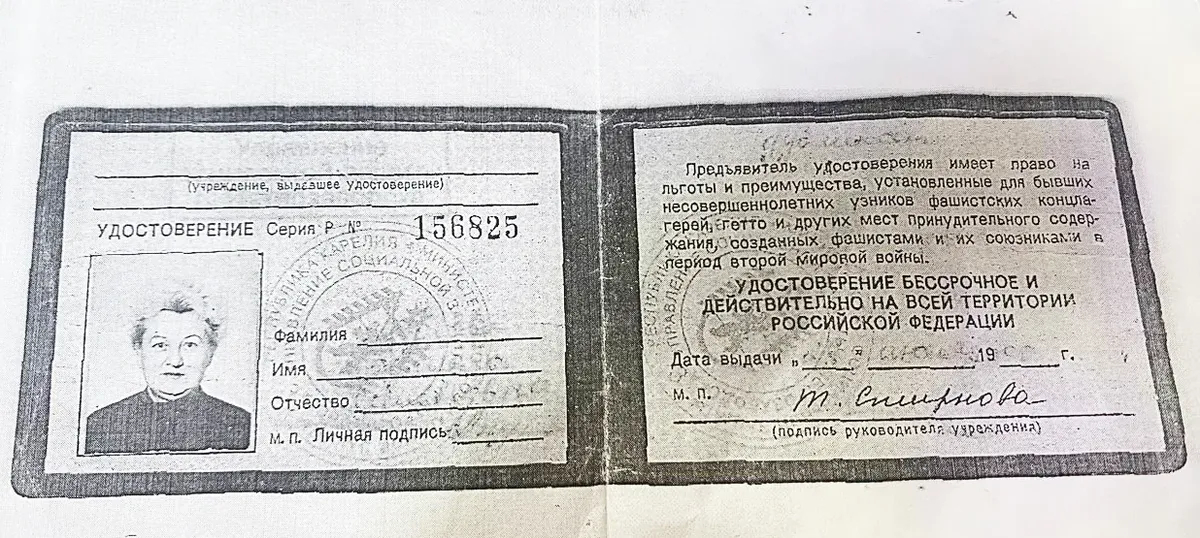 (учреждение, выдавшее удостоверение)
УДОСТОВЕРЕНИЕ Серия Р № 156825
Фамилия
Имя
Отчество
м. п. Личная подпись
РЕСПУБЛИКА КАРЕЛИЯ
Предъявитель удостоверения имеет право на
льготы и преимущества, установленные для бывших
несовершеннолетних узников фашистских концла-
герей, гетто и других мест принудительного содер-
жания, созданных фашистами и их союзниками в
период второй мировой войны.
УДОСТОВЕРЕНИЕ БЕССРОЧНОЕ И
ДЕЙСТВИТЕЛЬНО НА ВСЕЙ ТЕРРИТОРИИ
РОССИЙСКОЙ ФЕДЕРАЦИИ
Дата выдачи „ " 19 г.
м. п. Т. Смирнова
(подпись руководителя учреждения)